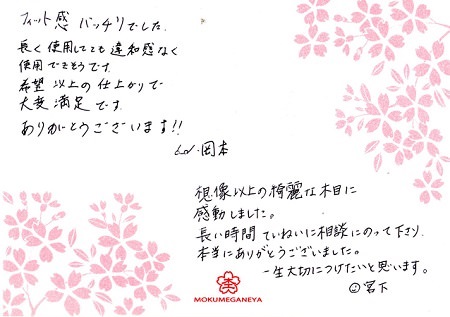 フィット感 バッチリでした。
長く使用してても違和感なく
使用できそうです。
希望以上の仕上がりで
大変満足です。
ありがとうございます!!
岡本
想像以上の綺麗な木目に
感動しました。
長い時間ていねいに相談にのって下さり、
本当にありがとうございました。
一生大切につけたいと思います。
宮下
MOKUMEGANEYA